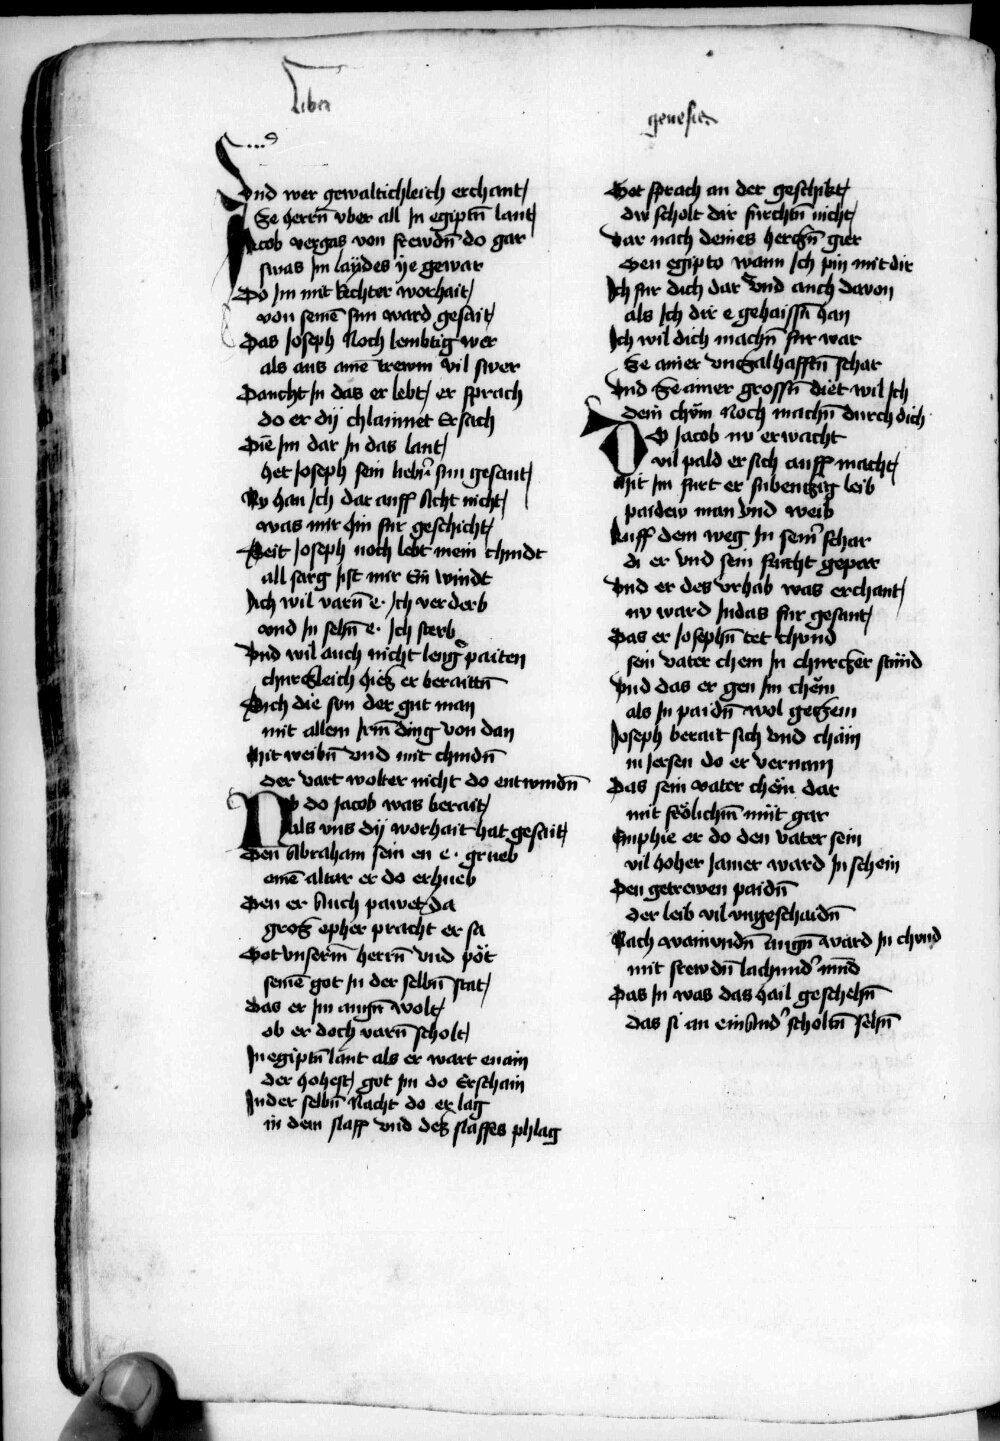 Liber
genesis
Vnd wer gewaltichleich erchant
Ze herrn̄ vber all Jn egiptn̄ lant
Jacob vergas von frewdn̄ do gar
swas Jm laÿdes ÿe gewar
Do Jm mit Rechter worhait
von seinē sun ward gesait
Das Joseph Noch lembtig wer
als aus ainē trewm vil swer
Daucht Jn das er lebt er sprach
do er dÿ chlainnet Ersach
Die Jm dar Jn das lant
het Joseph sein lieb sun gesant
Nv han Jch dar auff Acht nicht
was mir hin fur geschicht
Seit Joseph noch lebt mein chindt
all sarg Jst mir Ein windt
Jch wil varn̄ e · Jch verderb
vnd Jn sehn̄ e · Jch sterb
Vnd wil auch nicht leng paiten
churczleich hiez er beraittn̄
Sich die son der gut man
mit allem Jrm̄ ding von dan
Mit weibn̄ vnd mit chindn̄
der vart wolter nicht do entwindn̄
Nv do Jacob was berait
als vns dÿ worhait hat gesait
Den Abraham sein en e · grueb
ainē altar er do erhueb
Den er Auch pawet da
groz opher pracht er sa
Got vnserm̄ herrn̄ vnd pöt
seinē got Jn der selbn̄ stat
Das er Jm augn̄ wolt
ob er doch varn̄ scholt
Jn egiptn̄ lant als er wart enain
der hohest got Jm do Erschain
Jn der selbn̄ Nacht do er lag
in dem slaff vnd dez slaffes phlag
Got sprach an der geschikt
dw scholt dir furchtn̄ nicht
Var nach deines herczn̄ gier
Gen egipto wann Jch pin mit dir
Jch fur dich dar vnd auch davon
als Jch dir e gehaissn̄ han
Jch wil dich machn̄ fur war
Ze ainer vnzalhafftn̄ schar
Vnd Ze ainer grossn̄ diet wil Jch
dein chöm Noch machn̄ durch dich
Do Jacob nv erwacht
vil pald er sich auff macht
Mit Jm furt er sibenczig leib
paidew man vnd weib
Auff dem weg Jn sein schar
di er vnd sein frucht gepar
Vnd er des vrhab was erchant
nv ward Judas fur gesant
Das er Josephn̄ tet chund
sein vater chem Jn churczer stund
Vnd das er gen Jm chem
als Jn paidn̄ wol geczem
Joseph berait sich vnd cham
in Jersen do er vernam
Das sein vater chem dar
mit frölichm̄ mut gar
Emphie er do den vater sein
vil hoher Jamer ward Jn schein
Den getrewen paidn̄
der leib vil vngeschaidn̄
Nach wainundn̄ augn̄ ward Jn chund
mit frewdn̄ lachund mūd
Das Jn was das hail geschehn̄
das si an einAnd scholtn̄ sehn̄